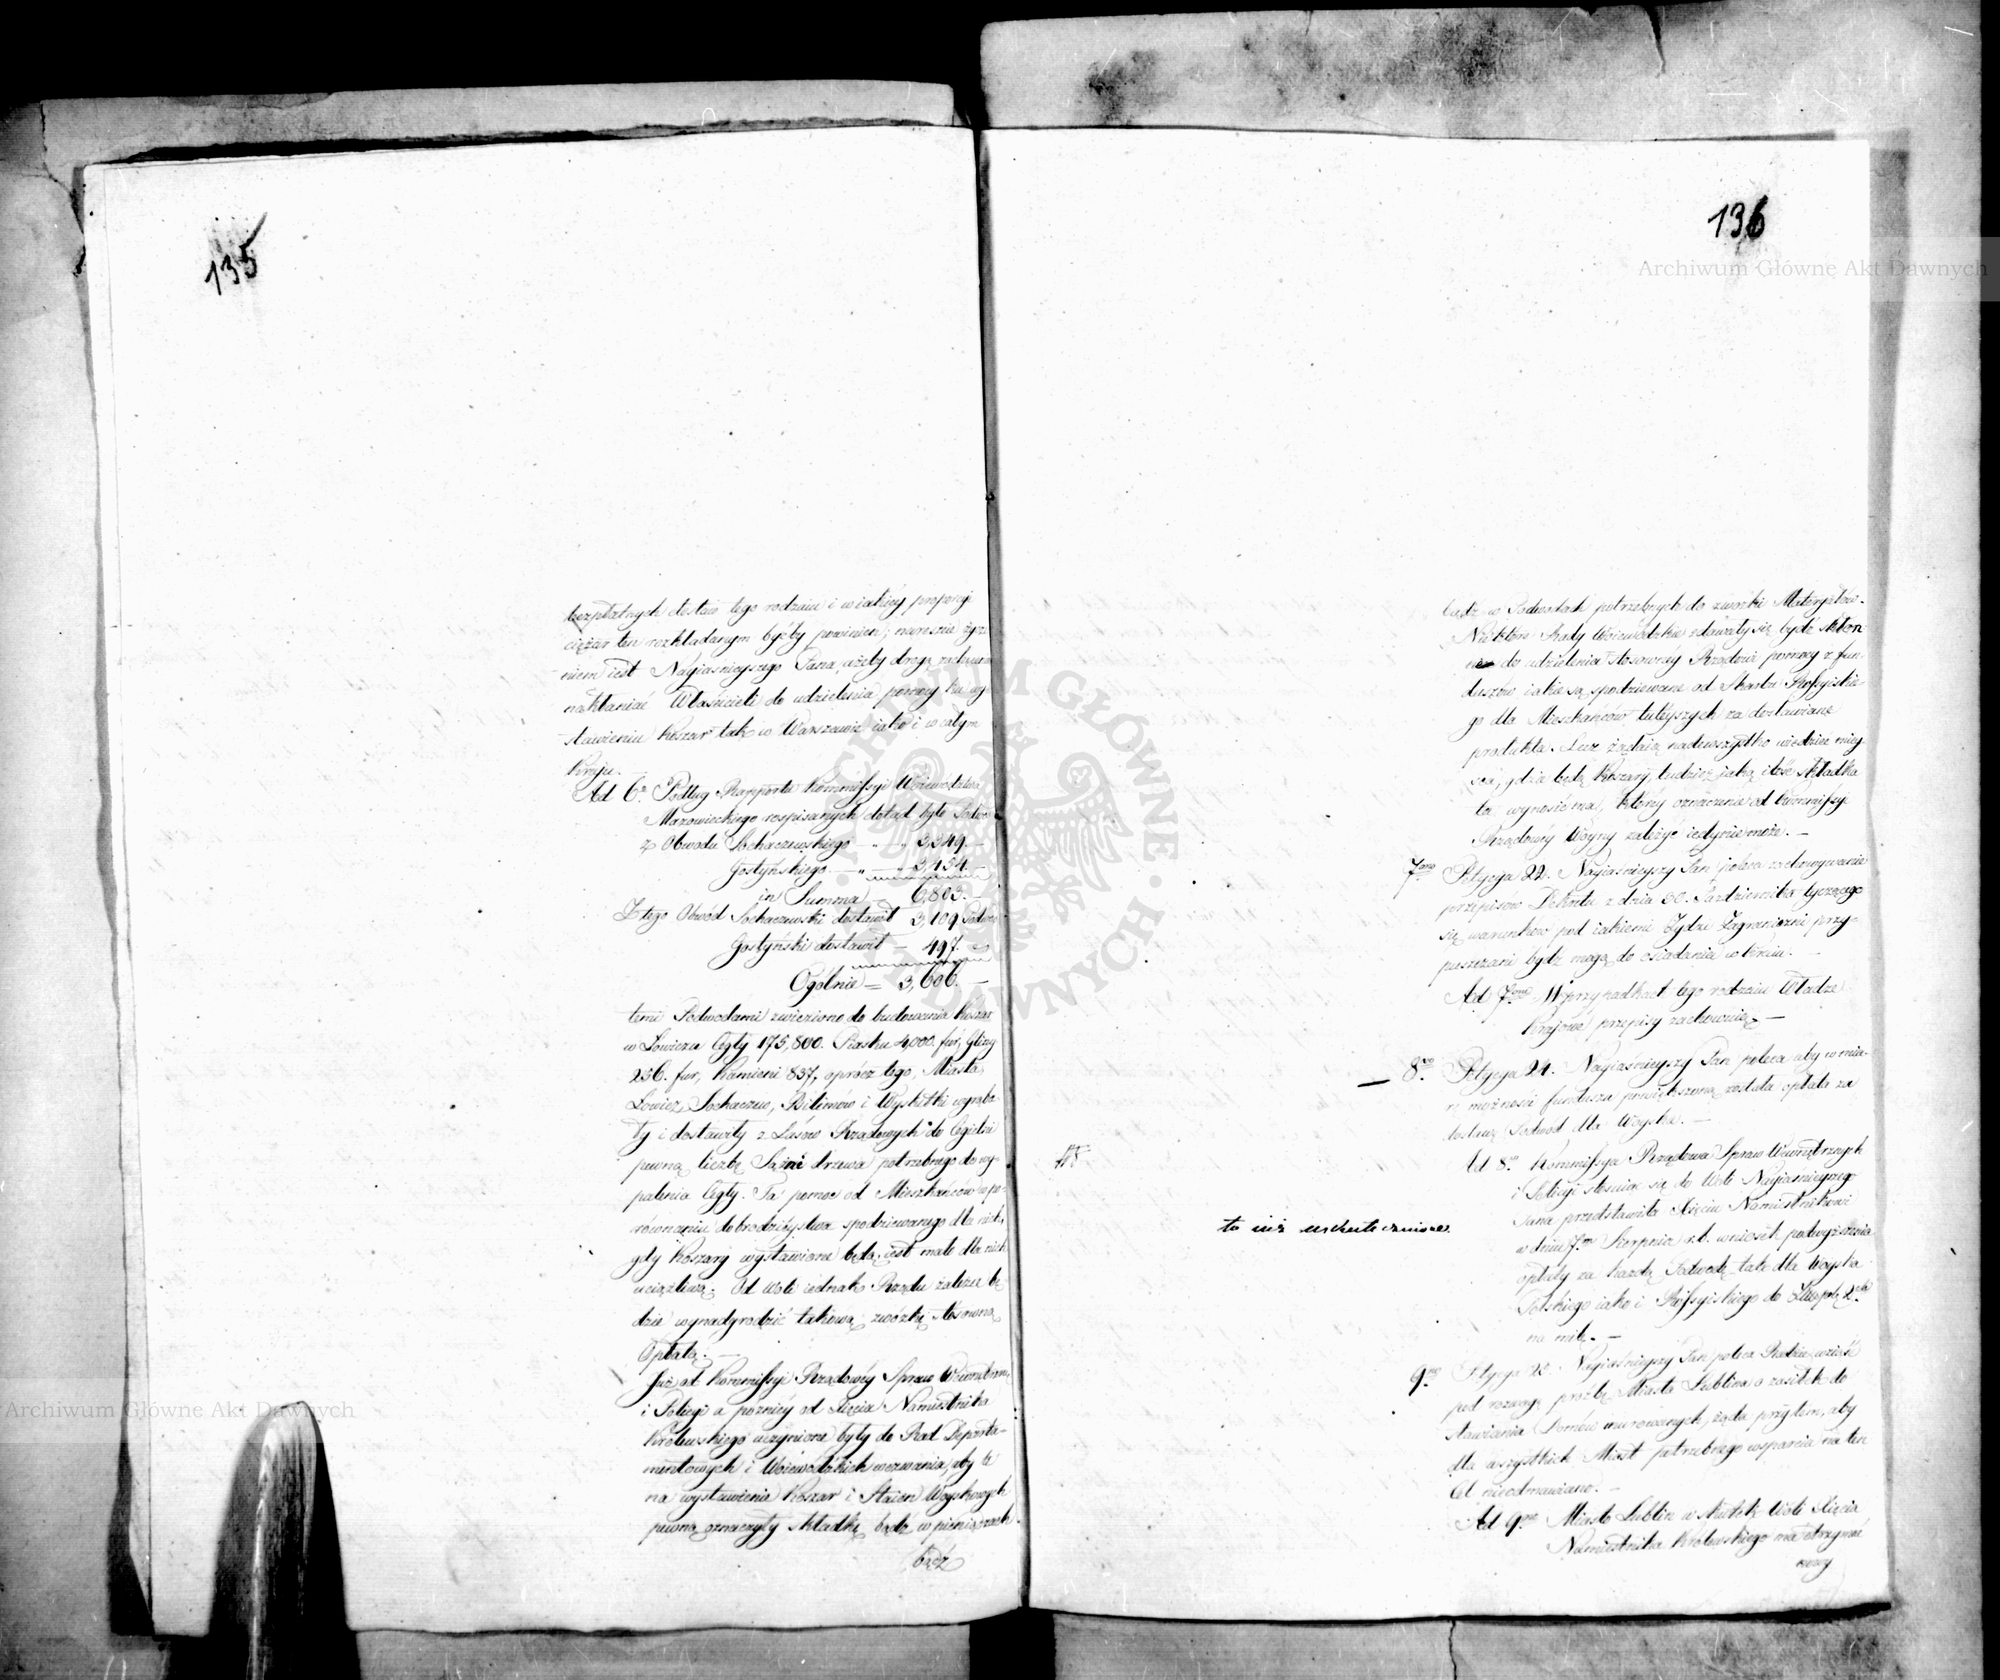 135
bezpłatnych dostaw tego rodzaiu i w iakiey proporcji
ciężar ten rozkładanym byćby powinien; nareszcie życze
niem iest Nayiaśnieyszego Pana, ażeby drogą zachęcenia
nakłaniać Właścicieli do udzielenia pomocy ku wy-
stawieniu Koszar tak w Warszawie iako i w całym
Kraju.
Ad 6. Podług Rapportu Kommissyi Woiewództwa
Mazowieckiego rospisanych dotąd było Podwód
z Obwodu Sochaczewskiego - " - " 3,349. -
Gostyńskiego - " - " 3,454. -
in Summa 6,803.
Z tego Obwód Sochaczewski dostawił 3,109 Podwód
Gostyński dostawił - 497. -
Ogólnie = 3,606. -
temi Podwodami zwieziono do budowania Koszar
w Łowiczu Cegły 175,800. Piasku 4,000. fur, Gliny
256. fur, Kamieni 837, oprócz tego, Miasta
Łowicz, Sochaczew, Bolimow i Wyskitki wyrąba-
ły i dostawiły z Lasów Rządowych do Cegielni
pewną liczbę Sążni drzewa potrzebnego do wy-
palenia Cegły. Ta pomoc od Mieszkańców w po-
równaniu dobrodzieystwa spodziewanego dla nich,
gdy Koszary wystawione będą, iest mało dla nich
uciążliwą. Od woli iednak Rządu zależeć bę-
dzie wynadgrodzić takową zwózkę stosowną
Opłatą. -
Już od Kommissyi Rządowéy Spraw Wewnętrznych
i Policyi a pózniey od Xięcia Namiestnika
Królewskiego uczynione były do Rad Departa-
mentowych i Woiewódzkich wezwania, aby te
na wystawienie Koszar i Stáien Woyskowych
pewną oznaczyły składkę bądź w pieniądzach
bądź
136
bądź w Podwodach potrzebnych do zwozki Materyałów.
Niektóre Rady Woiewódzkie zdawały się bydź skłon
ne do udzielenia stosowney Rządowi pomocy z fun-
duszów iakie są spodziewane od Skarbu Rossyiskie-
go dla Mieszkańców tuteyszych za dostawiane
produkta. Lecz żądaią nadewszystko wiedzieć miey-
sca, gdzie będą Koszary, tudzież iaką ilość składka
ta wynosić ma, który oznaczenie od Kommissyi
Rządowey Woyny zależyć iedynie może. -
7mo Petycya 22. Nayiaśnieyszy Pan poleca zachowywanie
przepisow Dekretu z dnia 30. Października tyczącego
się warunkow pod iakiemi Żydzi Zagraniczni przy-
puszczani bydź mogą do osiadania w kraiu. -
Ad 7mo W przypadkach tego rodzaiu Władze
Krajowe przepisy zachowuią. -
- 8vo Petycya 24. Nayiaśnieyszy Pan poleca aby w mia-
rę możności funduszu powiększoną została opłata za
dostawę Podwod dla Woyska. -
45
Ad 8vo Kommissya Rządowa Spraw Wewnętrznych
i Policyi stosuiąc się do Woli Nayiaśnieyszego
Pana przedstawiła Xięciu Namiestnikowi
w dniu 7mo Sierpnia r.b. wniosek podwyższenia
to już uskutecznione.
opłaty za każdą Podwodę tak dla Woyska
Polskiego iako i Rossyiskiego do Złłpol. 2ch
na milę. -
9no Petycya 28 Nayiaśnieyszy Pan poleca Radzie, wziąść
pod rozwagę prośbę Miasta Lublina o zasiłek do
stawiania Domów murowanych, żąda przytem, aby
dla wszystkich Miast potrzebnego wsparcia na ten
Cel nieodmawiano. -
Ad 9no Miasto Lublin w skutek Woli Xięcia
Namiestnika Królewskiego ma otrzymać
nowy
Archiwum Główne Akt Dawnych
Archiwum Główne Akt Dawnych
ARCHIWUM GŁÓWNE AKT DAWNYCH